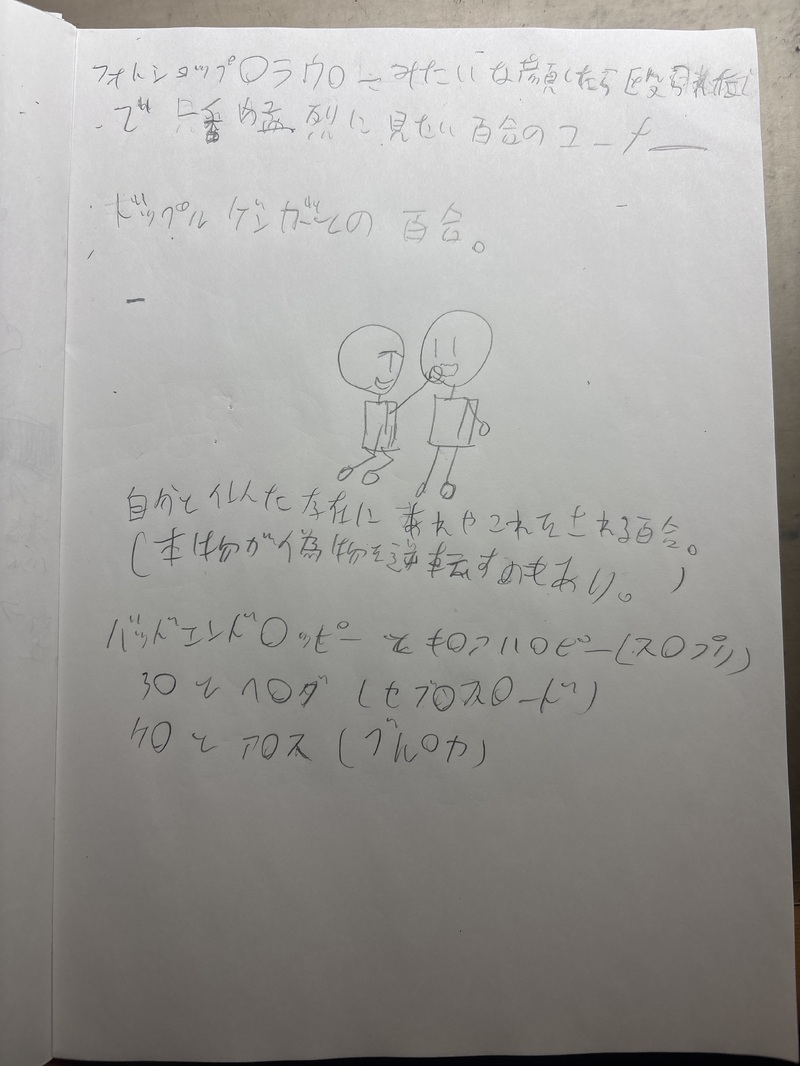 フォトショップ〇ラウ〇とみたいな顔した
で 猛烈に見たい百合のコーナー
ドッペルゲンガーとの百合。
自分と似た存在にあれやこれをされる百合。
(本物が偽物を逆転するのもあり。)
バッドエンド〇ッピーとキ〇アハ〇ピー(ス〇プリ)
30とヘ〇ダ(セブ〇ス〇ード)
ケ〇とア〇ス(ブル〇カ)